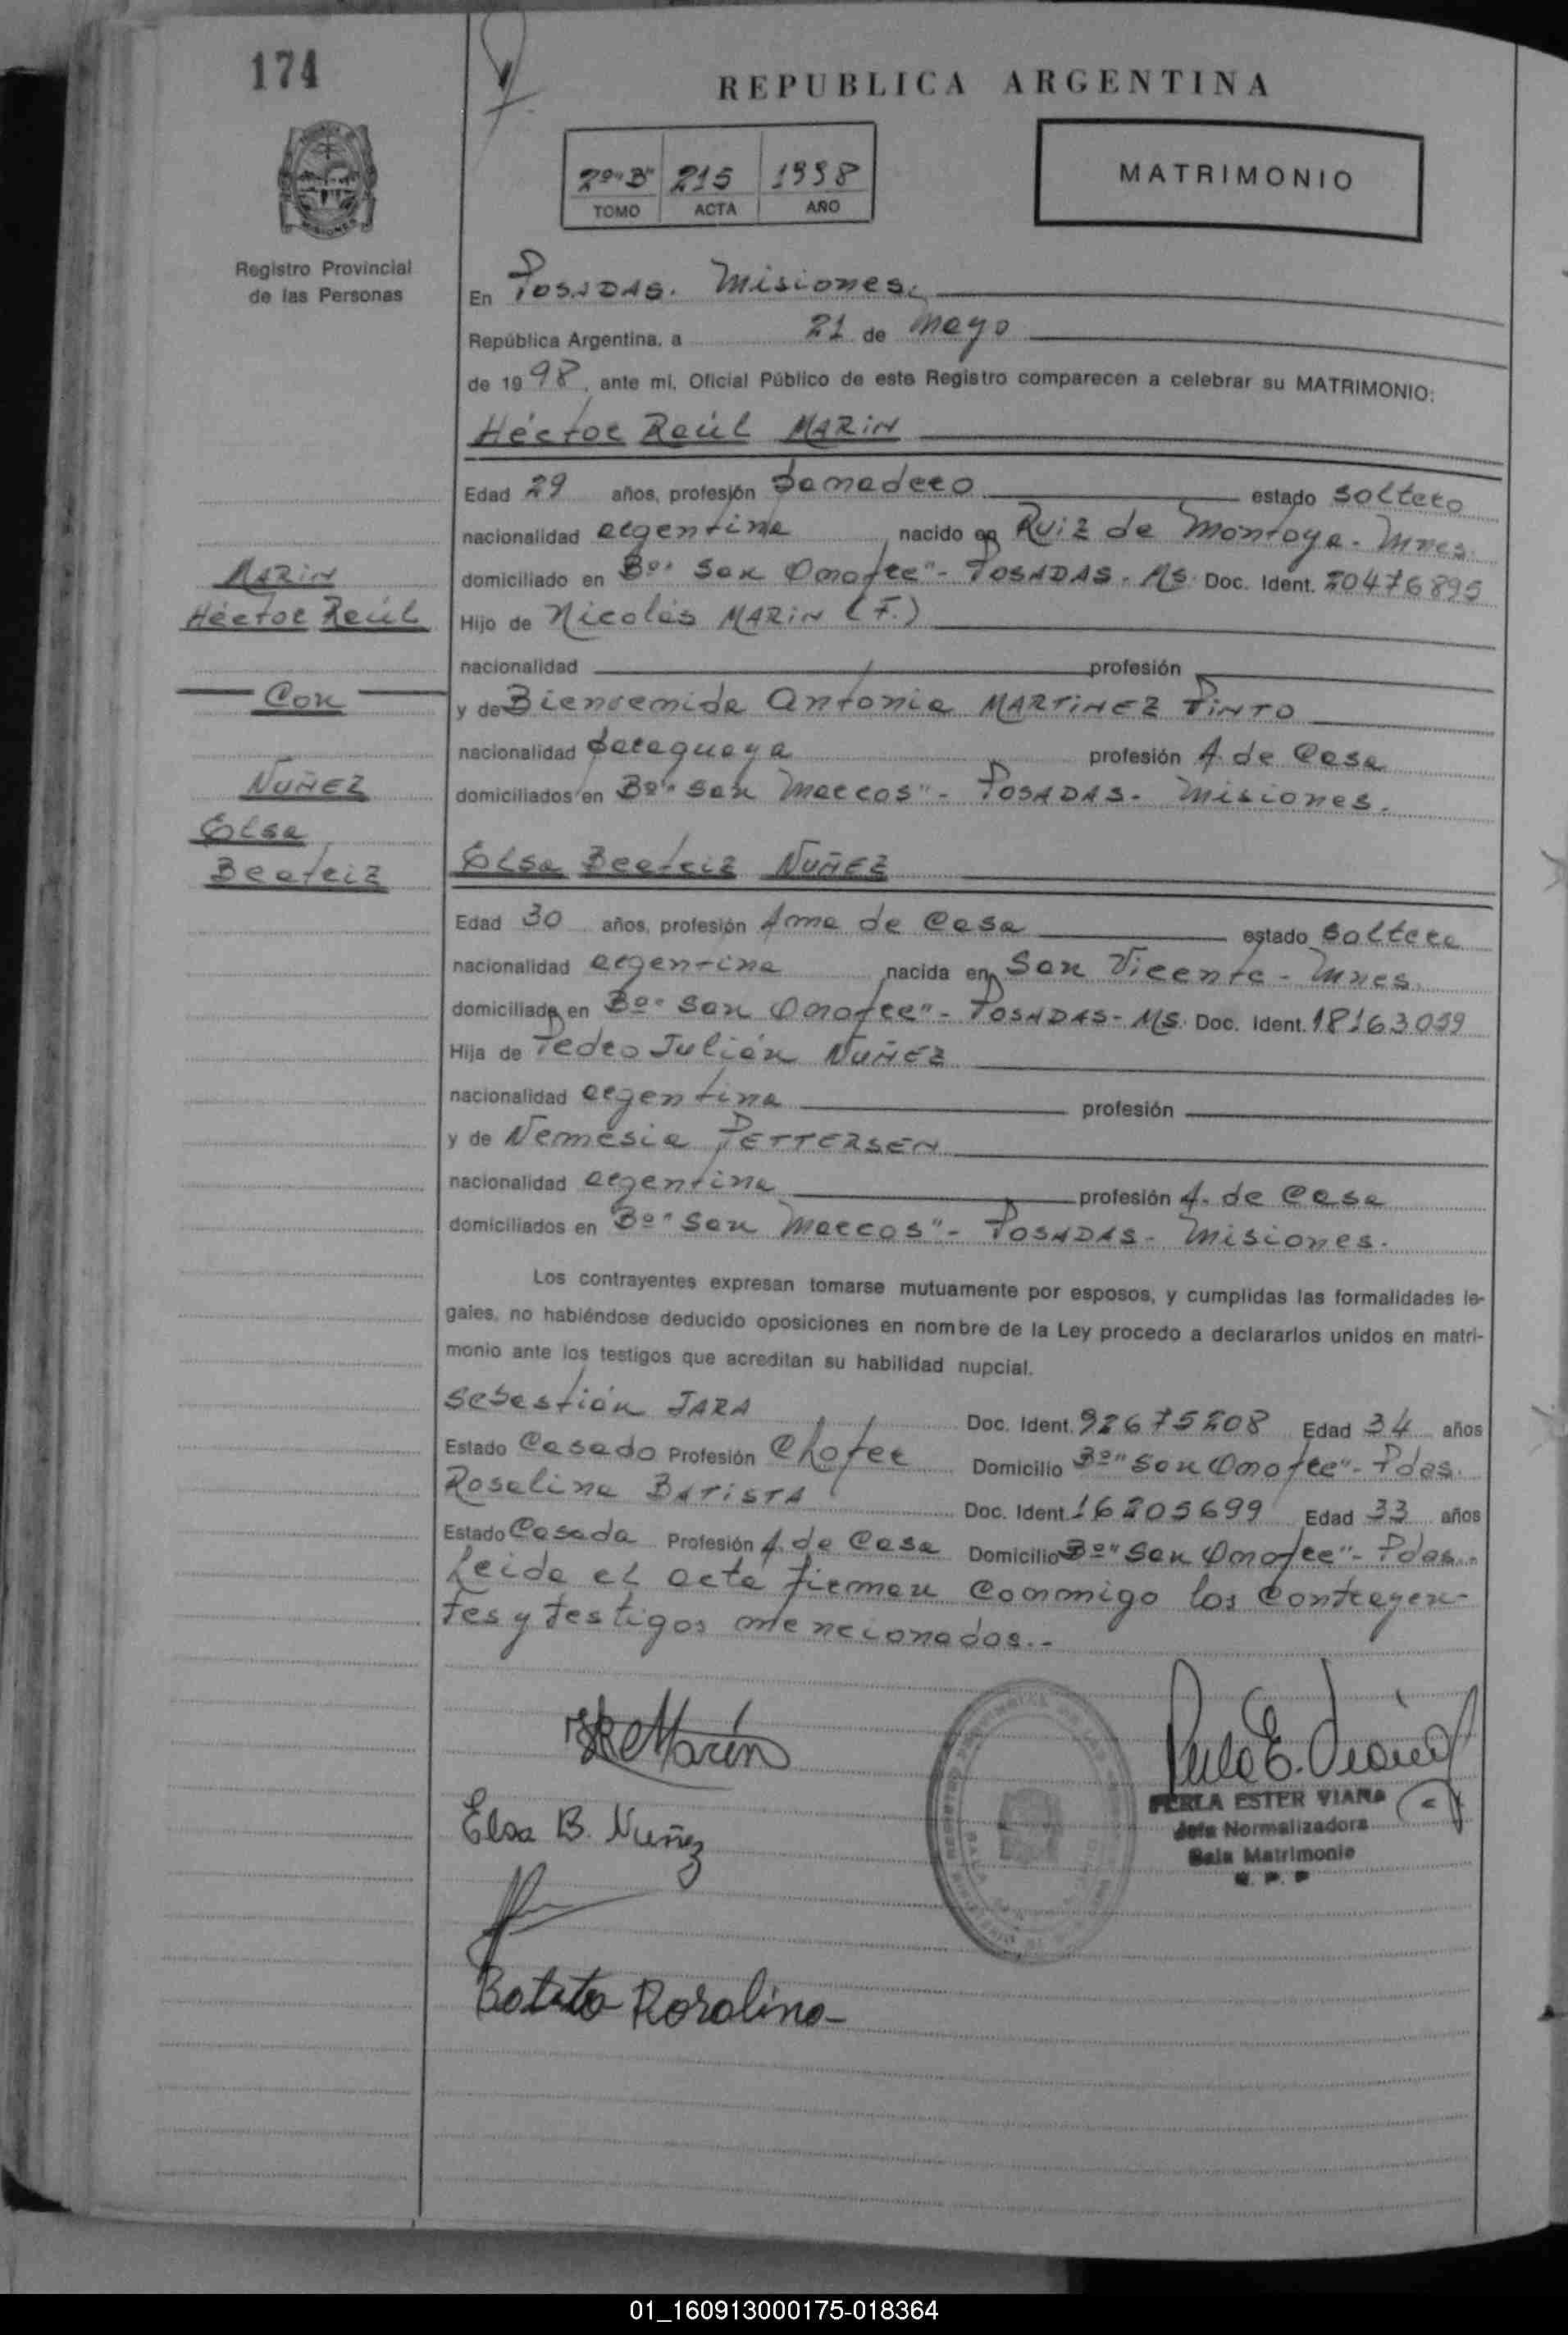 174
REPUBLICA ARGENTINA
2º"B" 215 1998
TOMO ACTA AÑO
MATRIMONIO
Registro Provincial
de las Personas
En POSADAS. Misiones.
República Argentina, a 21 de Mayo
de 1998, ante mi, Oficial Público de este Registro comparecen a celebrar su MATRIMONIO:
Héctor Raúl MARIN
Edad 29 años, profesión Panadero estado Soltero
nacionalidad argentina nacido en Ruiz de Montoya - Mnes.
domiciliado en Bº "San Onofre" - POSADAS - Ms. Doc. Ident. 20476895
MARIN
Héctor Raúl
Hijo de Nicolás MARIN (F.)
nacionalidad profesión
Con
y de Bienvenida Antonia MARTINEZ PINTO
nacionalidad Paraguaya profesión A. de Casa
NUÑEZ
domiciliados en Bº "San Marcos" - POSADAS - Misiones.
Elsa
Beatriz
Elsa Beatriz NUÑEZ
Edad 30 años, profesión Ama de Casa estado Soltera
nacionalidad argentina nacida en San Vicente - Mnes.
domiciliada en Bº "San Onofre" - POSADAS - Ms. Doc. Ident. 18163059
Hija de Pedro Julián NUÑEZ
nacionalidad argentina profesión
y de Nemesia PETTERSEN
nacionalidad argentina profesión A. de Casa
domiciliados en Bº "San Marcos" - POSADAS - Misiones.
Los contrayentes expresan tomarse mutuamente por esposos, y cumplidas las formalidades le-
gales, no habiéndose deducido oposiciones en nombre de la Ley procedo a declararlos unidos en matri-
monio ante los testigos que acreditan su habilidad nupcial.
Sebastián JARA Doc. Ident. 92675208 Edad 34 años
Estado Casado Profesión Chofer Domicilio Bº "San Onofre" - Pdas.
Rosalina BATISTA Doc. Ident. 16205699 Edad 33 años
Estado Casada Profesión A. de Casa Domicilio Bº "San Onofre" - Pdas.
Leida el acta firman conmigo los contrayen-
tes y testigos mencionados.-
Marín
Elsa B. Nuñez
Batista Rosalina
Perla E. Viana
PERLA ESTER VIANA
Jefa Normalizadora
Sala Matrimonio
R. P. P
01_160913000175-018364